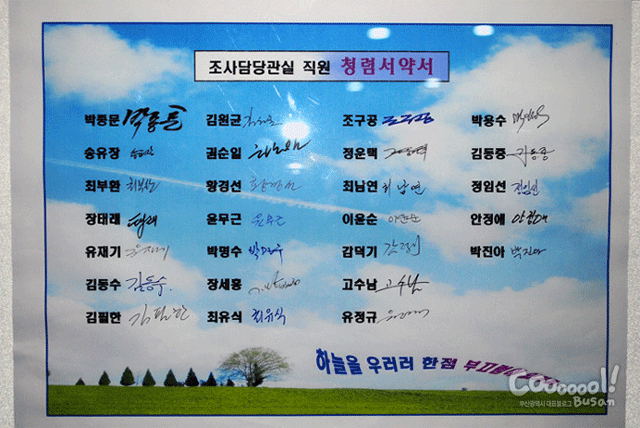 조사담당관실 직원 청렴서약서
박동문 박동문 김원균 조구공 조구공 박용수 박용수
송유장 권순일 정운택 김동중 김동중
최부환 최부환 황경선 황경선 최남연 최남연 정임선 정임선
장태래 윤무근 윤무근 이윤순 안정에
유재기 유재기 박명수 박명수 감덕기 박진아 박진아
김동수 김동수. 장세홍 고수남 고수남
김필한 김필한 최유식 최유식 유정규
하늘을 우러러 한점 부끄럼
Cooooool!
부산광역시 대표블로그 Busan